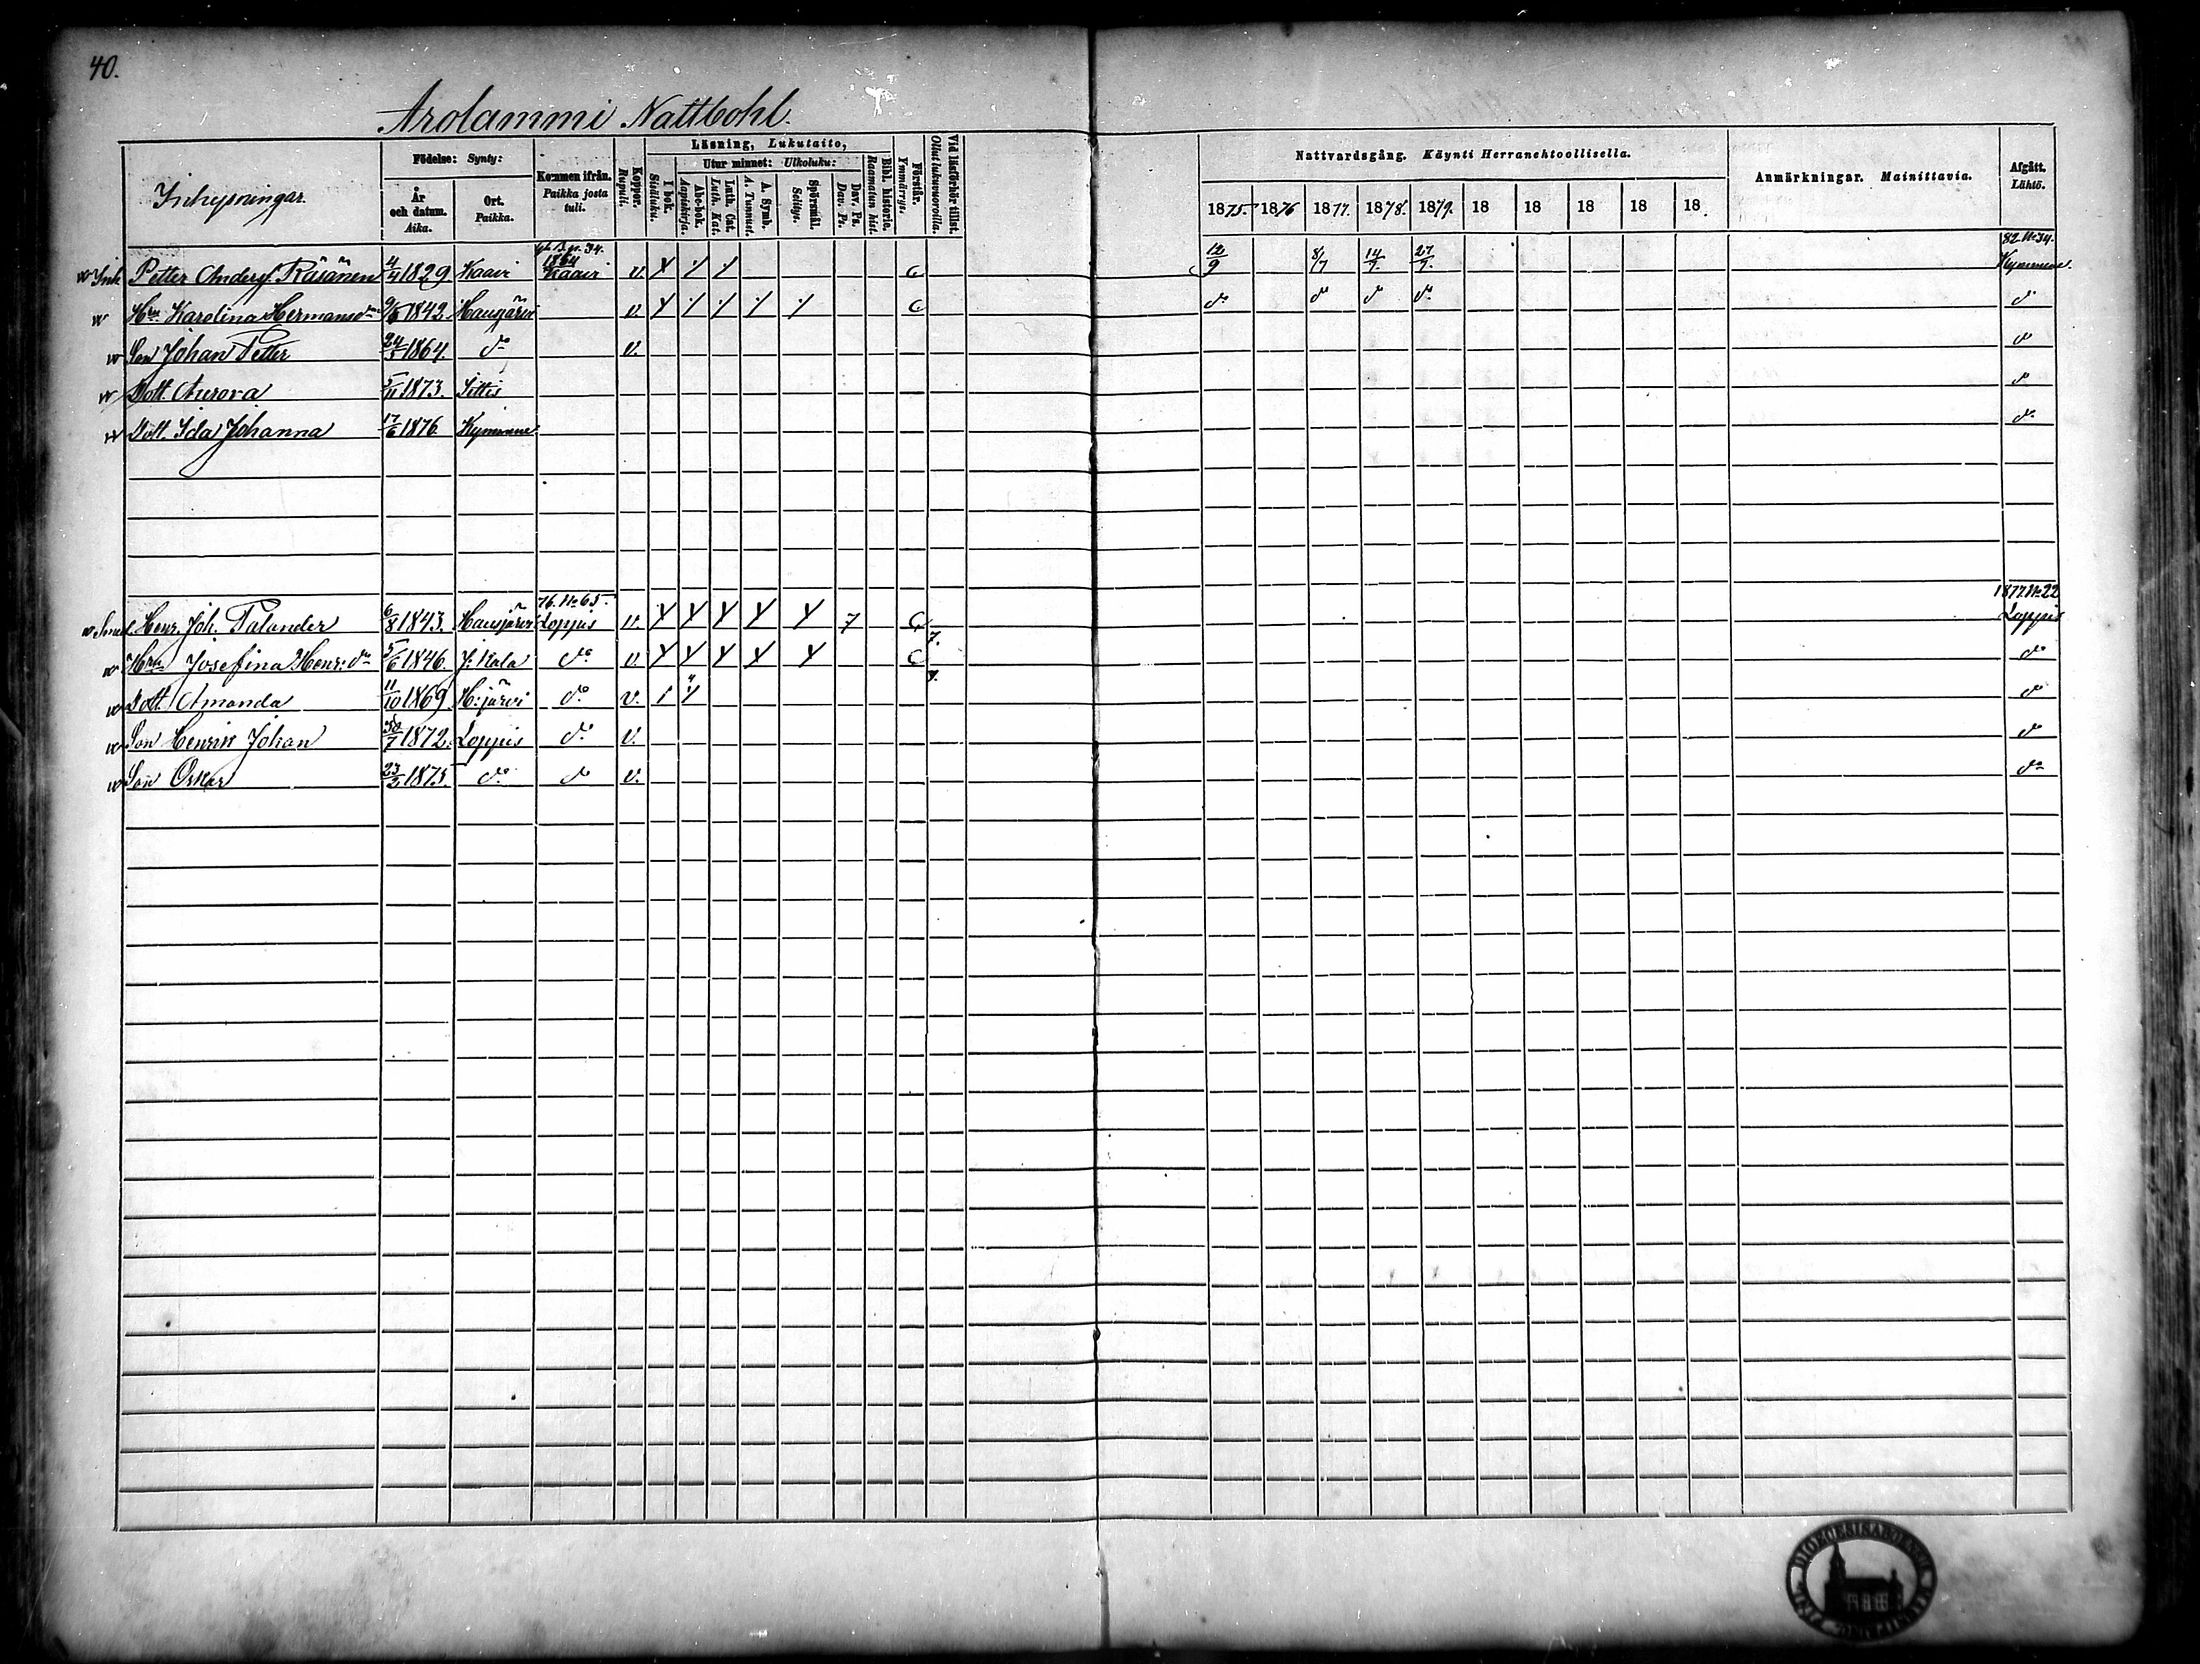 40.
Arolammi Nattbohl.
Inhysningar
Födelse: Synty:
År och datum. Aika.
Ort. Paikka.
Kommen ifrån. Paikka josta tuli.
Koppor. Rupuli.
Läsning, Lukutaito,
I bok. Sisäluku.
Utur minnet: Ulkoluku:
Abc-bok. Aapiskirja.
Luth. Cat. Luth. Kat.
A. Symb. A. Tunnust.
Spörsmål. Selitys.
Dav. Ps. Dav. Ps.
Bibl. historie. Raamatun hist.
Förstår. Ymmärrys.
Vid läsförhör tillst. Ollut lukuvuoroilla.
Nattvardsgång. Käynti Herranehtoollisella.
1875. 1876 1877. 1878. 1879. 18 18 18 18 18
Anmärkningar. Mainittavia.
Afgått. Lähtö.
1864 82 No 34.
w Inh Petter Anderss. Räsänen 4/4 1829 Kaavi Kaavi v. 12/9 8/7 14/7. 27/7. Kymmene.
w Hru Karolina Hermansdr 9/5 1842 Hausjärvi v. do do do do do
w Son Johan Petter 24/5 1864. do v. do
w Dott. Aurora 5/11 1873. Sittis do
w Dott. Ida Johanna 17/6 1876 Kymmene do
76. No 65. 1877 No 22
w Smed Henr. Joh. Palander 6/8 1843. Hausjärvi Loppis v. 7 7. Loppis
w Hru Josefina Henr:dr 5/6 1846. J:kala do v. do
w Dott. Amanda 11/10 1869. H:järvi do v. do
w Son Henrik Johan 30/7 1872. Loppis do v. do
w Son Oskar 23/2 1875. do do v. do
DIOECESIS ABOENSIS